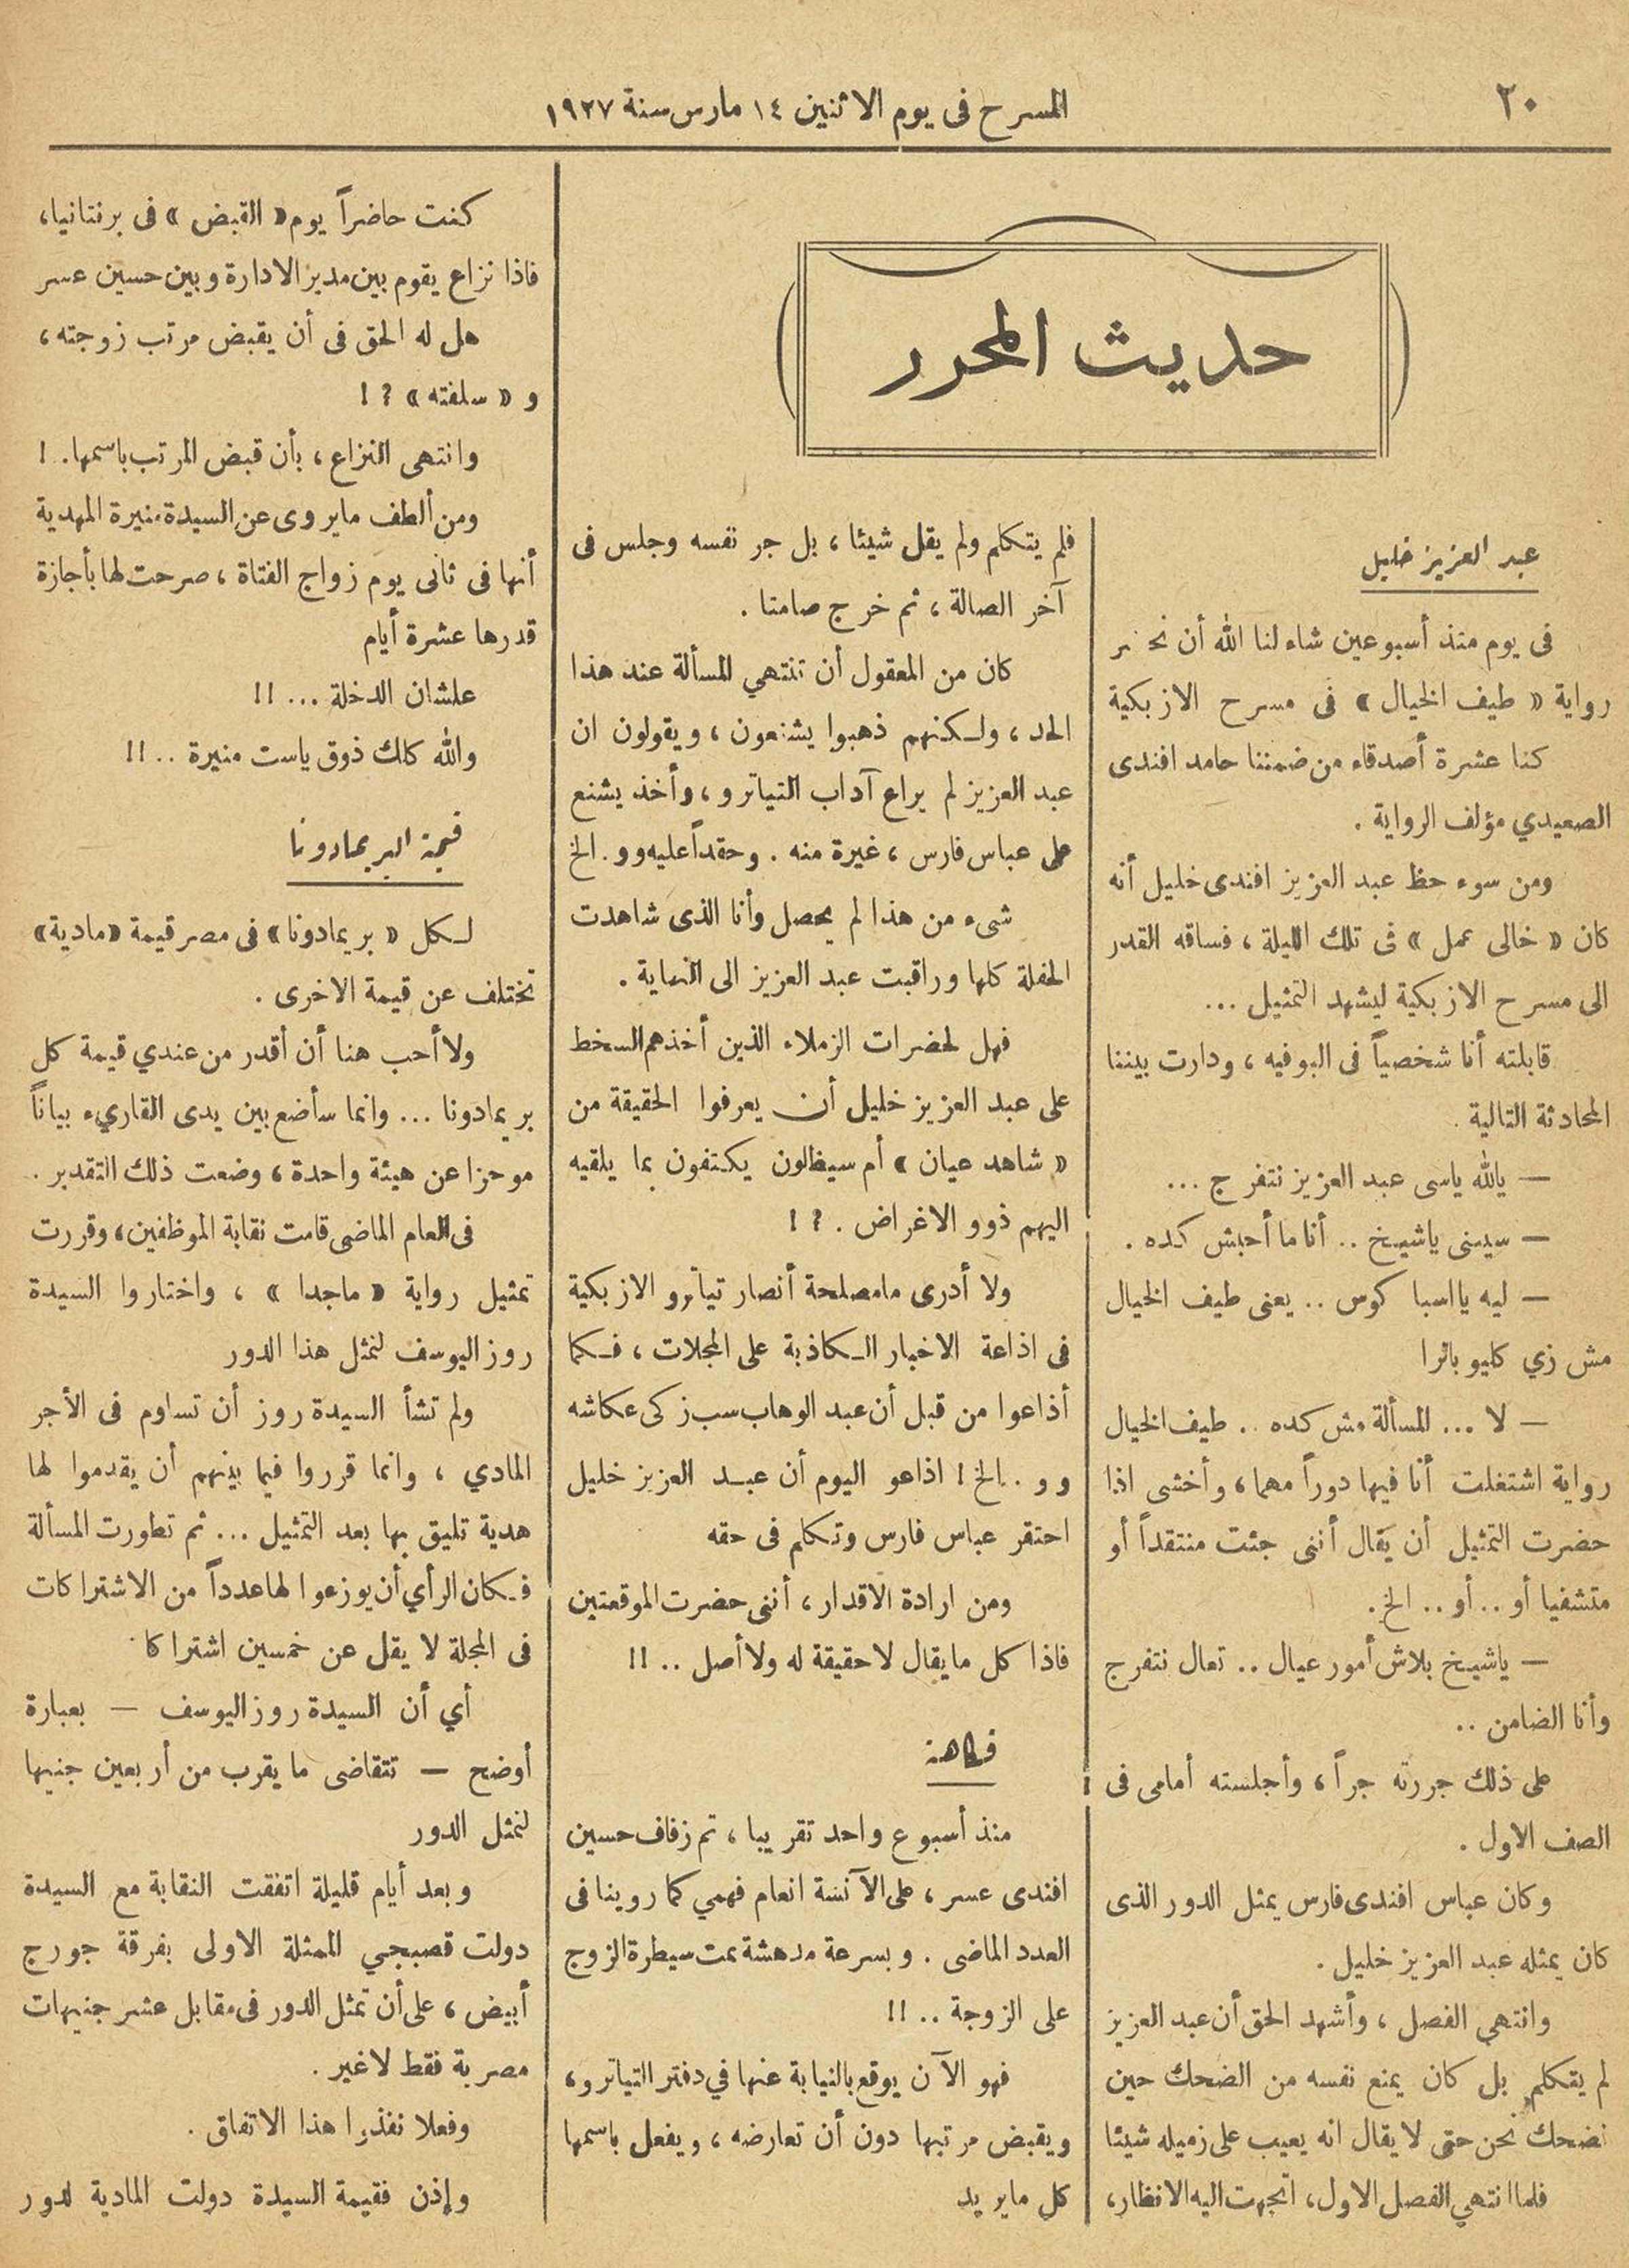 ٢٠
المسرح فى يوم الاثنين ١٤ مارس سنة ١٩٢٧
حديث المحرر
عبد العزيز خليل
فى يوم منذ أسبوعين شاء لنا الله أن نحضر
رواية « طيف الخيال » فى مسرح الازبكية
كنا عشرة أصدقاء من ضمننا حامد افندى
الصعيدي مؤلف الرواية .
ومن سوء حظ عبد العزيز افندى خليل أنه
كان « خالى عمل » فى تلك الليلة ، فساقه القدر
الى مسرح الازبكية ليشهد التمثيل ...
قابلته أنا شخصياً فى البوفيه ، ودارت بيننا
المحادثة التالية .
— يالله ياسى عبد العزيز نتفرج ...
— سيبنى ياشيخ .. أنا ما أحبش كده .
— ليه يااسبا كوس .. يعنى طيف الخيال
مش زي كليو باترا
— لا ... المسألة مش كده .. طيف الخيال
رواية اشتغلت أنا فيها دوراً مهما ، وأخشى اذا
حضرت التمثيل أن يقال أننى جئت منتقداً أو
متشفيا أو .. أو .. الخ .
— ياشيخ بلاش أمور عيال .. تعال نتفرج
وأنا الضامن ..
على ذلك جررته جراً ، وأجلسته أمامى فى
الصف الاول .
وكان عباس افندى فارس يمثل الدور الذى
كان يمثله عبد العزيز خليل .
وانتهي الفصل ، وأشهد الحق أن عبد العزيز
لم يتكلم بل كان يمنع نفسه من الضحك حين
نضحك نحن حتى لا يقال انه يعيب على زميله شيئا
فلما انتهي الفصل الاول ، اتجهت اليه الانظار ،
فلم يتكلم ولم يقل شيئا ، بل جر نفسه وجلس فى
آخر الصالة ، ثم خرج صامتا .
كان من المعقول أن تنتهي المسألة عند هذا
الحد ، ولكنهم ذهبوا يشنعون ، ويقولون ان
عبد العزيز لم يراع آداب التياترو ، وأخذ يشنع
على عباس فارس ، غيرة منه . وحقداً عليه وو . الخ
شىء من هذا لم يحصل وأنا الذى شاهدت
الحفلة كلها وراقبت عبد العزيز الى النهاية .
فهل لحضرات الزملاء الذين أخذهم السخط
على عبد العزيز خليل أن يعرفوا الحقيقة من
« شاهد عيان » أم سيظلون يكتفون بما يلقيه
اليهم ذوو الاغراض . ? !
ولا أدرى مامصلحة أنصار تياترو الازبكية
فى اذاعة الاخبار الكاذبة على المجلات ، فكما
أذاعوا من قبل أن عبد الوهاب سب زكى عكاشه
و و . الخ ! اذاعو اليوم أن عبد العزيز خليل
احتقر عباس فارس وتكلم فى حقه
ومن ارادة الاقدار ، أننى حضرت الموقعتين
فاذا كل ما يقال لاحقيقة له ولا أصل .. !!
فكاهة
منذ أسبوع واحد تقريبا ، تم زفاف حسين
افندى عسر ، على الآنسة انعام فهمي كما روينا فى
العدد الماضى . وبسرعة مدهشة تمت سيطرة الزوج
على الزوجة .. !!
فهو الآن يوقع بالنيابة عنها في دفتر التياترو ،
ويقبض مرتبها دون أن تعارضه ، ويفعل باسمها
كل ما يريد
كنت حاضراً يوم « القبض » فى برنتانيا ،
فاذا نزاع يقوم بين مدير الادارة وبين حسين عسر
هل له الحق فى أن يقبض مرتب زوجته ،
و « سلفته » ? !
وانتهى النزاع ، بأن قبض المرتب باسمها . !
ومن ألطف مايروى عن السيدة منيرة المهدية
أنها فى ثانى يوم زواج الفتاة ، صرحت لها بأجازة
قدرها عشرة أيام
علشان الدخلة ... !!
والله كلك ذوق ياست منيرة .. !!
قيمة البريمادونا
لكل « بريمادونا » فى مصر قيمة « مادية »
تختلف عن قيمة الاخرى .
ولا أحب هنا أن أقدر من عندي قيمة كل
بريمادونا ... وانما سأضع بين يدى القاريء بياناً
موجزا عن هيئة واحدة ، وضعت ذلك التقدير .
فى العام الماضى قامت نقابة الموظفين ، وقررت
تمثيل رواية « ماجدا » ، واختاروا السيدة
روز اليوسف لتمثل هذا الدور
ولم تشأ السيدة روز أن تساوم فى الأجر
المادي ، وانما قرروا فيما بينهم أن يقدموا لها
هدية تليق بها بعد التمثيل ... ثم تطورت المسألة
فكان الرأي أن يوزعوا لها عدداً من الاشتراكات
فى المجلة لا يقل عن خمسين اشتراكا .
أي أن السيدة روز اليوسف — بعبارة
أوضح — تتقاضى ما يقرب من أربعين جنيها
لتمثل الدور
وبعد أيام قليلة اتفقت النقابة مع السيدة
دولت قصبجي الممثلة الاولى بفرقة جورج
أبيض ، على أن تمثل الدور فى مقابل عشر جنيهات
مصرية فقط لاغير .
وفعلا نفذوا هذا الاتفاق .
وإذن فقيمة السيدة دولت المادية لدور